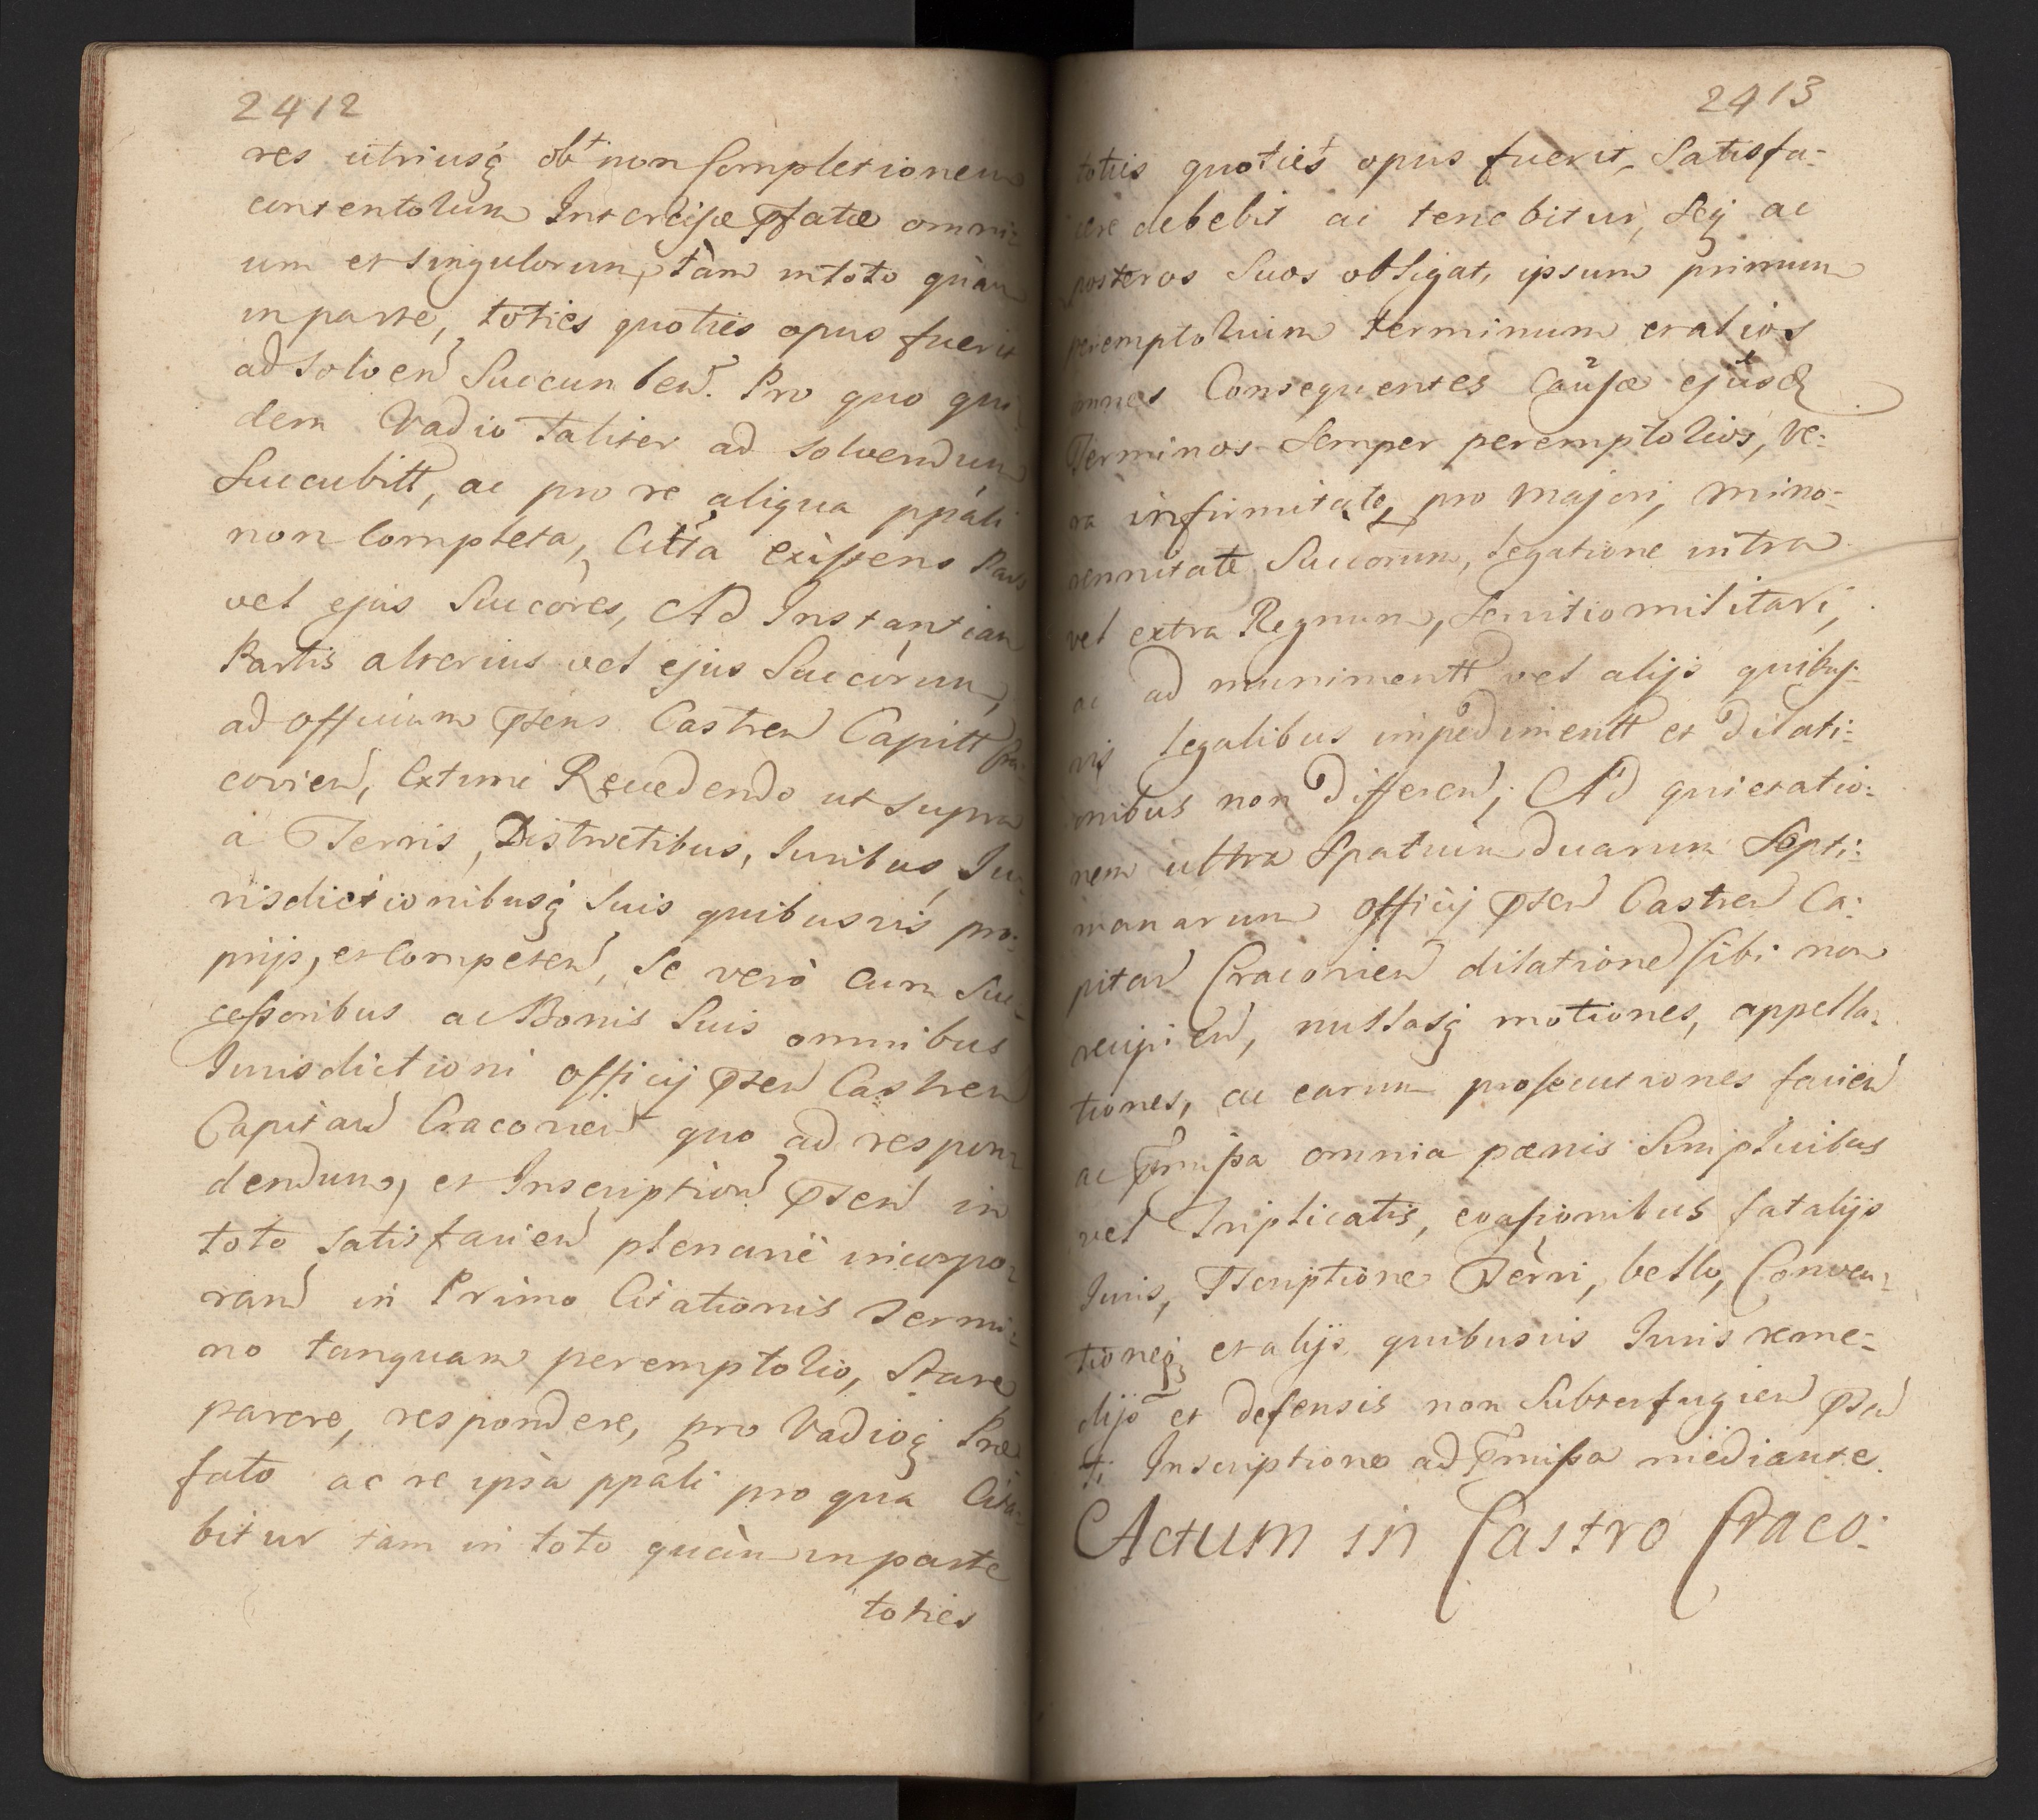 2412
res utriusq obt non Completionem
contentorum Intercisæ Pfatæ omni-
um et singulorum, tàm in toto quàm
in parte, toties quoties opus fuerit
ad solven Succumben. Pro quo qui
dem Vadio Taliter ad solvendum
Succubitt, ac pro re aliqua ppali
non Completa, Citta existens Pars
vel ejus Succòres, Ad Instantiam
Partis alterius vel ejus Succòrum,
ad officium Psens Castren Capitt Cra-
covien, Extunc Recedendo ut supra
a Terris, Districtibus, Iuribus, Iu-
risdictionibusq Suis quibusvis pro-
prijs, et Competen, Se verò cum Suc-
cessoribus ac Bonis Suis omnibus
Iurisdictioni officij Psen Castren
Capitan Cracovien quo ad respon-
dendum, et Inscription Psen in
toto satisfacien plenariè incorpo-
ran in Primo Citationis Termi-
no tanquam peremptorio, Stare
parere, respondere, pro Vadioq Præ
fato ac re ipsa ppali pro qua Cita-
bitur tàm in toto quàm in parte
toties
2413
toties quoties opus fuerit, Satisfa-
cere debebit ac tenebitur, Seq ac
posteros Suos obligat, ipsum primum
peremptorium terminum et alios
omnes Consequentes Causæ ejusd
Terminos Semper peremptorios, Ve-
ra infirmitate, pro majori, mino-
rennitate Succorum, legatione intra
vel extra Regnum, Servitio militari,
ac ad munimentt vel alijs quibus-
vis legalibus impedimentt et Dilati-
onibus non Differen; Ad quietatio-
nem ultra Spatium Duarum Septi-
manarum officij Psen Castren Ca-
pitan Cracovien dilatione sibi non
recipien, nullasq motiones, appella-
tiones, ac earum prosecutiones facien
ac Pmissa omnia pænis Simplicibus
vel Triplicatis, evasionibus fatalijs
Iuris, Pscriptione Terri, bello, Conven-
tioneq et alijs quibusvis Iuris reme-
dijs et defensis non Subterfugien Psen
ti Inscriptione ad Pmissa mediante.
Actum in Castro Craco-